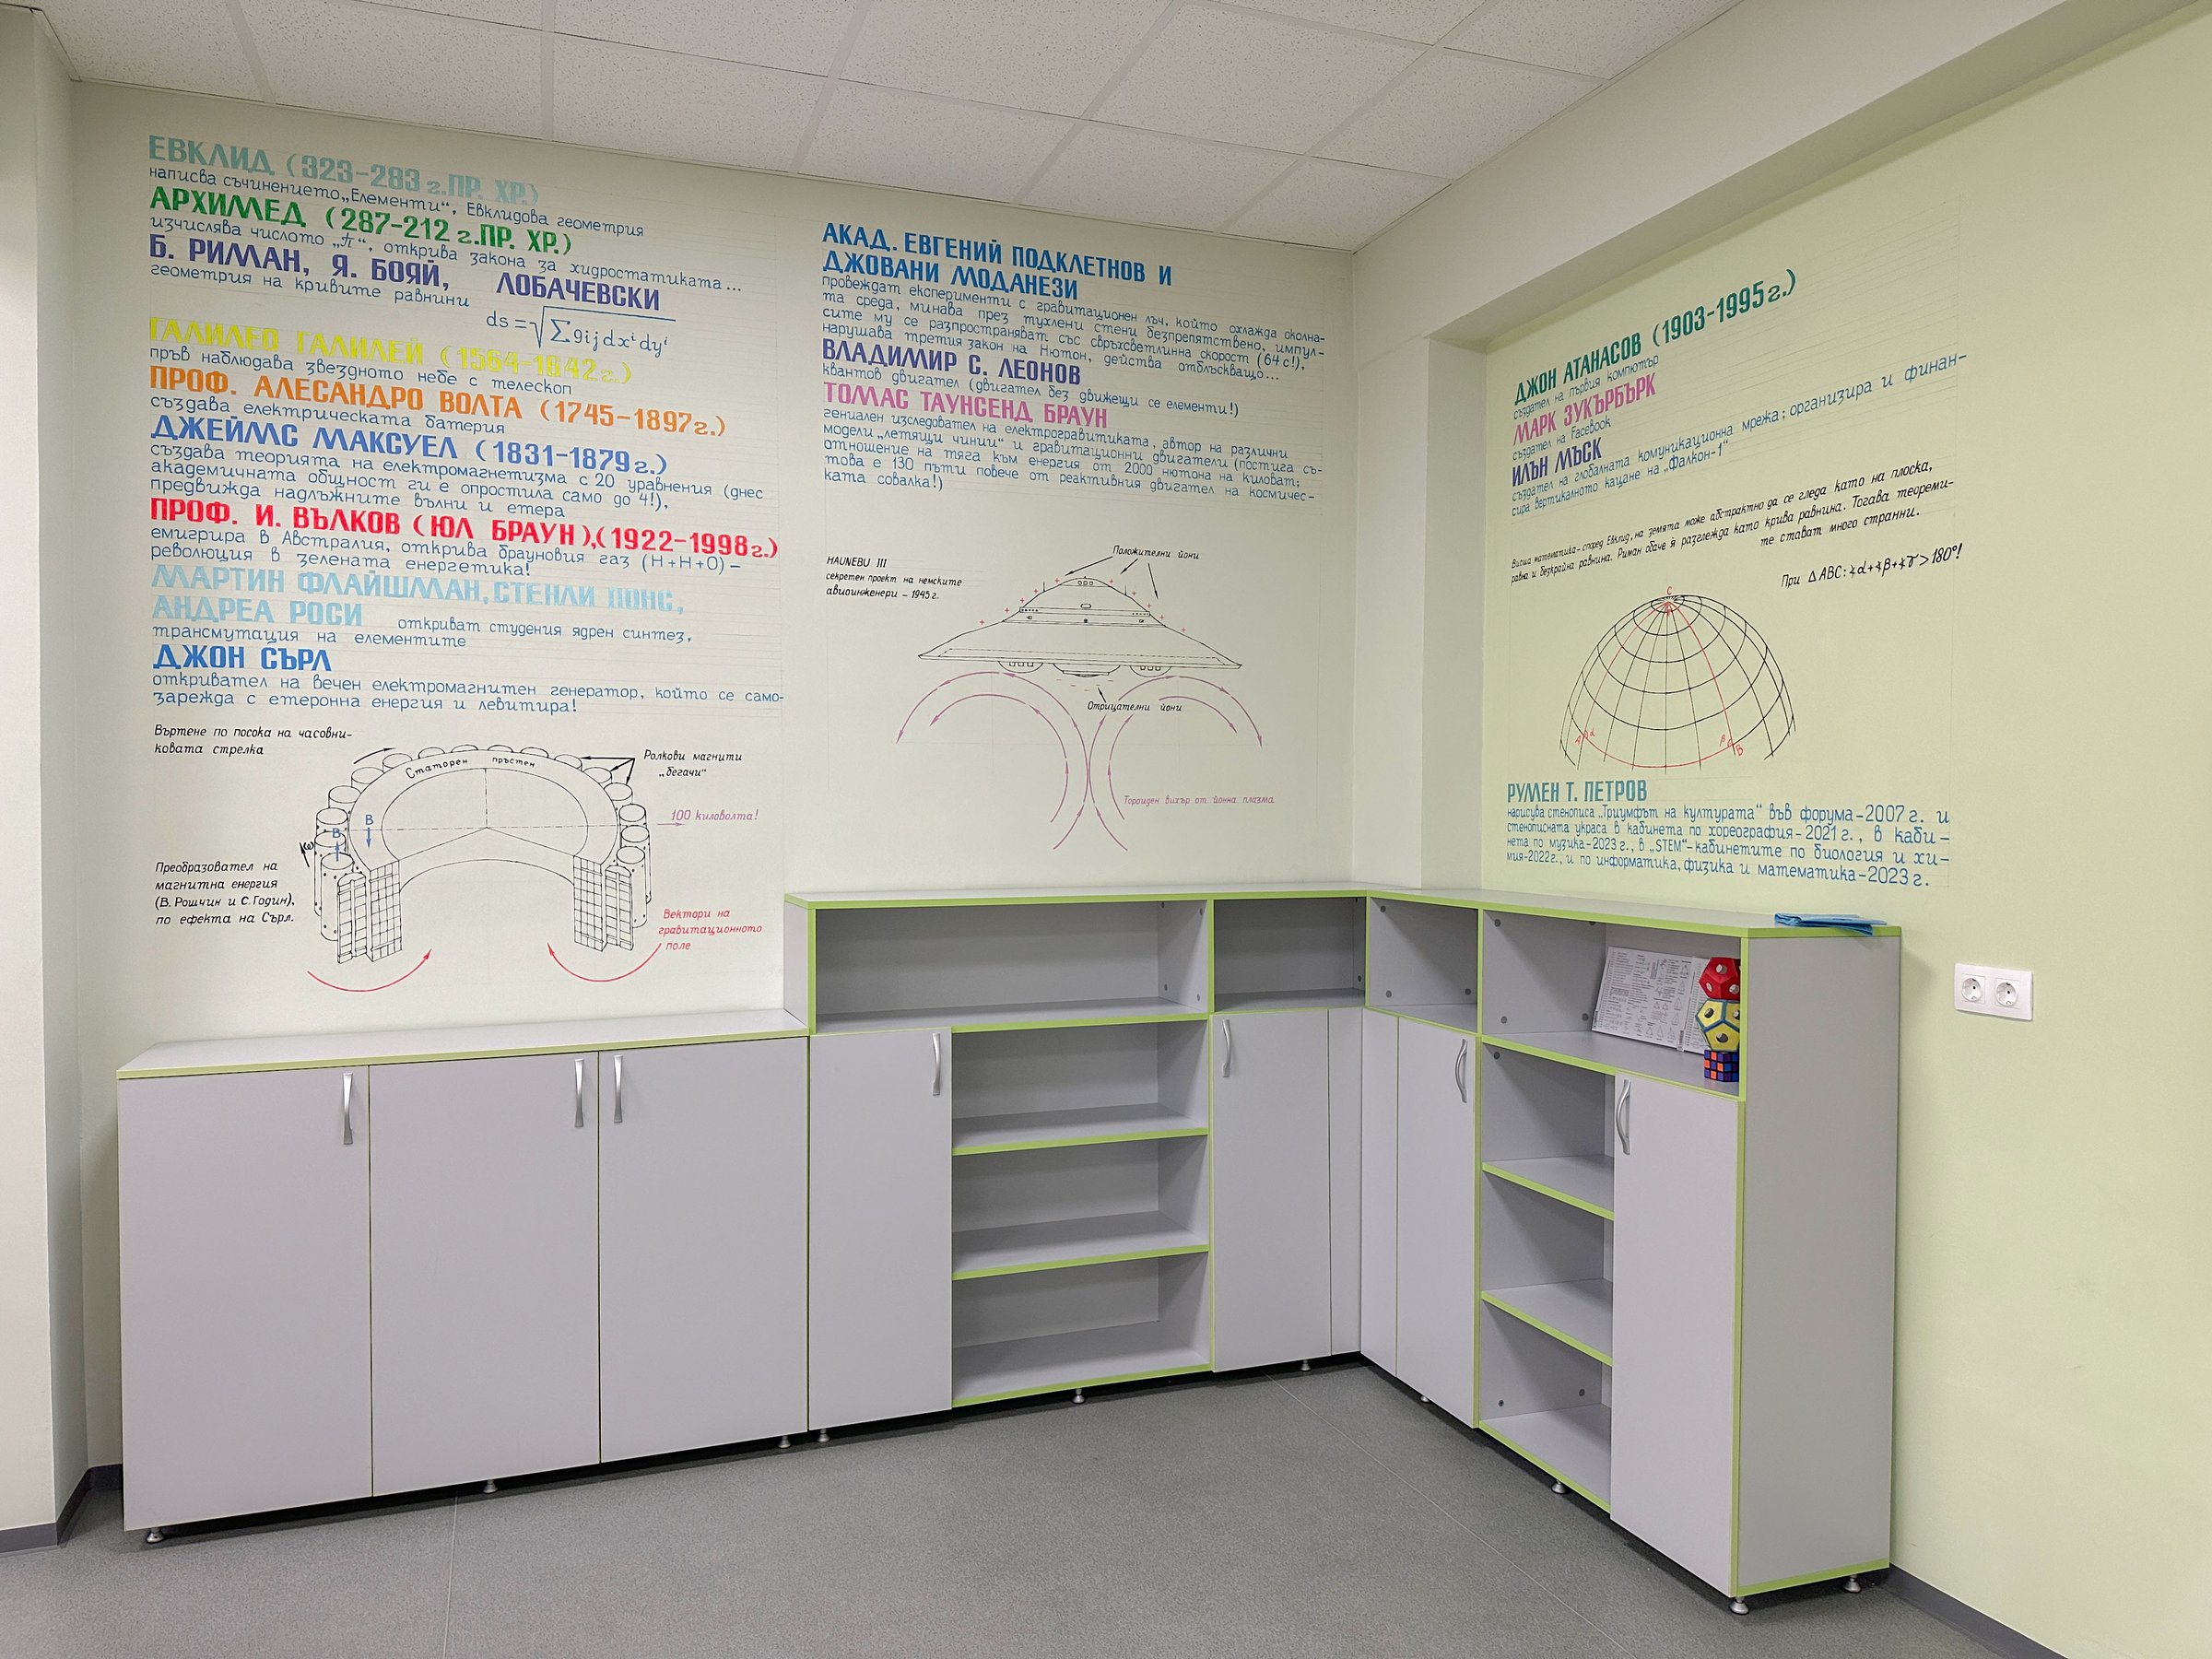 ЕВКЛИД (323-283 г.ПР. ХР.)
написва съчинението „Елементи“, Евклидова геометрия
АРХИМЕД (287-212 г.ПР. ХР.)
изчислява числото „π“, открива закона за хидростатиката...
Б. РИМАН, Я. БОЯЙ, ЛОБАЧЕВСКИ
геометрия на кривите равнини
ds=√∑gijdxⁱdyⁱ
ГАЛИЛЕО ГАЛИЛЕЙ (1564-1642г.)
пръв наблюдава звездното небе с телескоп
ПРОФ. АЛЕСАНДРО ВОЛТА (1745-1897г.)
създава електрическата батерия
ДЖЕЙМС МАКСУЕЛ (1831-1879г.)
създава теорията на електромагнетизма с 20 уравнения (днес
академичната общност ги е опростила само до 4!),
предвижда надлъжните вълни и етера
ПРОФ. И. ВЪЛКОВ (ЮЛ БРАУН),(1922-1998г.)
емигрира в Австралия, открива брауновия газ (H+H+O)-
революция в зелената енергетика!
МАРТИН ФЛАЙШМАН, СТЕНЛИ ПОНС,
АНДРЕА РОСИ откриват студения ядрен синтез,
трансмутация на елементите
ДЖОН СЪРЛ
откривател на вечен електромагнитен генератор, който се само-
зарежда с етеронна енергия и левитира!
Въртене по посока на часовни-
ковата стрелка
Статорен пръстен
Ролкови магнити
„бегачи“
100 киловолта!
B
B
ω
Преобразовател на
магнитна енергия
(В. Рошчин и С. Годин),
по ефекта на Сърл.
Вектори на
гравитационното
поле
АКАД. ЕВГЕНИЙ ПОДКЛЕТНОВ И
ДЖОВАНИ МОДАНЕЗИ
провеждат експерименти с гравитационен лъч, който охлажда околна-
та среда, минава през тухлени стени безпрепятствено, импул-
сите му се разпространяват със свръхсветлинна скорост (64 c!),
нарушава третия закон на Нютон, действа отблъскващо...
ВЛАДИМИР С. ЛЕОНОВ
квантов двигател (двигател без движещи се елементи!)
ТОМАС ТАУНСЕНД БРАУН
гениален изследовател на електрогравитиката, автор на различни
модели „летящи чинии“ и гравитационни двигатели (постига съ-
отношение на тяга към енергия от 2000 нютона на киловат;
това е 130 пъти повече от реактивния двигател на космичес-
ката совалка!)
HAUNEBU III
секретен проект на немските
авиоинженери - 1945 г.
Положителни йони
Отрицателни йони
Тороиден вихър от йонна плазма
ДЖОН АТАНАСОВ (1903-1995г.)
създател на първия компютър
МАРК ЗУКЪРБЪРК
създател на Facebook
ИЛЪН МЪСК
създател на глобалната комуникационна мрежа; организира и финан-
сира вертикалното кацане на „Фалкон-1“
Висша математика - според Евклид, на земята може абстрактно да се гледа като на плоска,
равна и безкрайна равнина. Риман обаче я разглежда като крива равнина. Тогава теореми-
те стават много странни.
При △ABC: ∢α+∢β+∢γ>180°!
C
A α
β B
РУМЕН Т. ПЕТРОВ
нарисува стенописа „Триумфът на културата“ във форума-2007 г. и
стенописната украса в кабинета по хореография-2021 г., в каби-
нета по музика-2023 г., в „STEM“-кабинетите по биология и хи-
мия-2022г., и по информатика, физика и математика-2023 г.